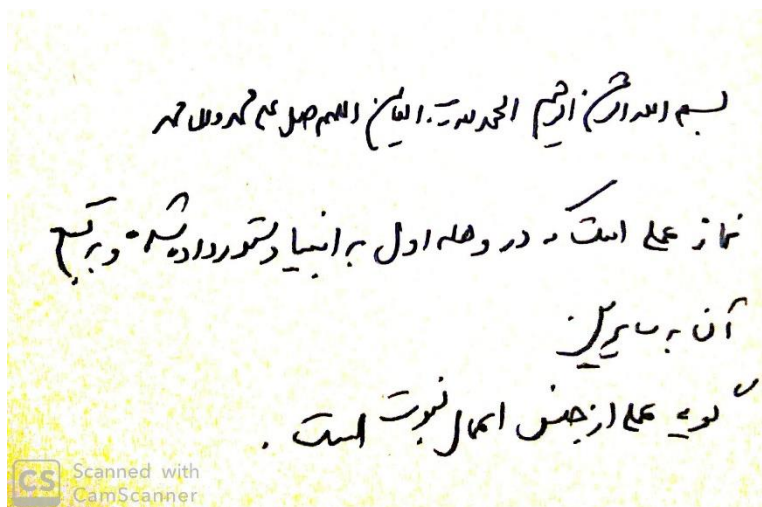 بسم الله الرحمن الرحیم الحمدلله رب العالمین اللهم صل علی محمد وآل محمد
نماز عملی است که در وهله اول به انبیا دستور داده شده و به تبع
آن به سایرین
گویی عملی از جنس اعمال نبوت است .
CS Scanned with
CamScanner